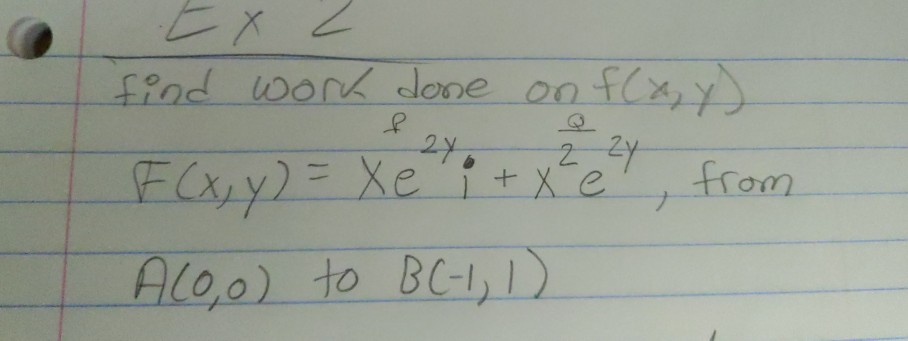 Ex 2
find work done on f(x,y)
P Q
F(x,y) = xe^2y i + x^2 e^2y, from
A(0,0) to B(-1,1)